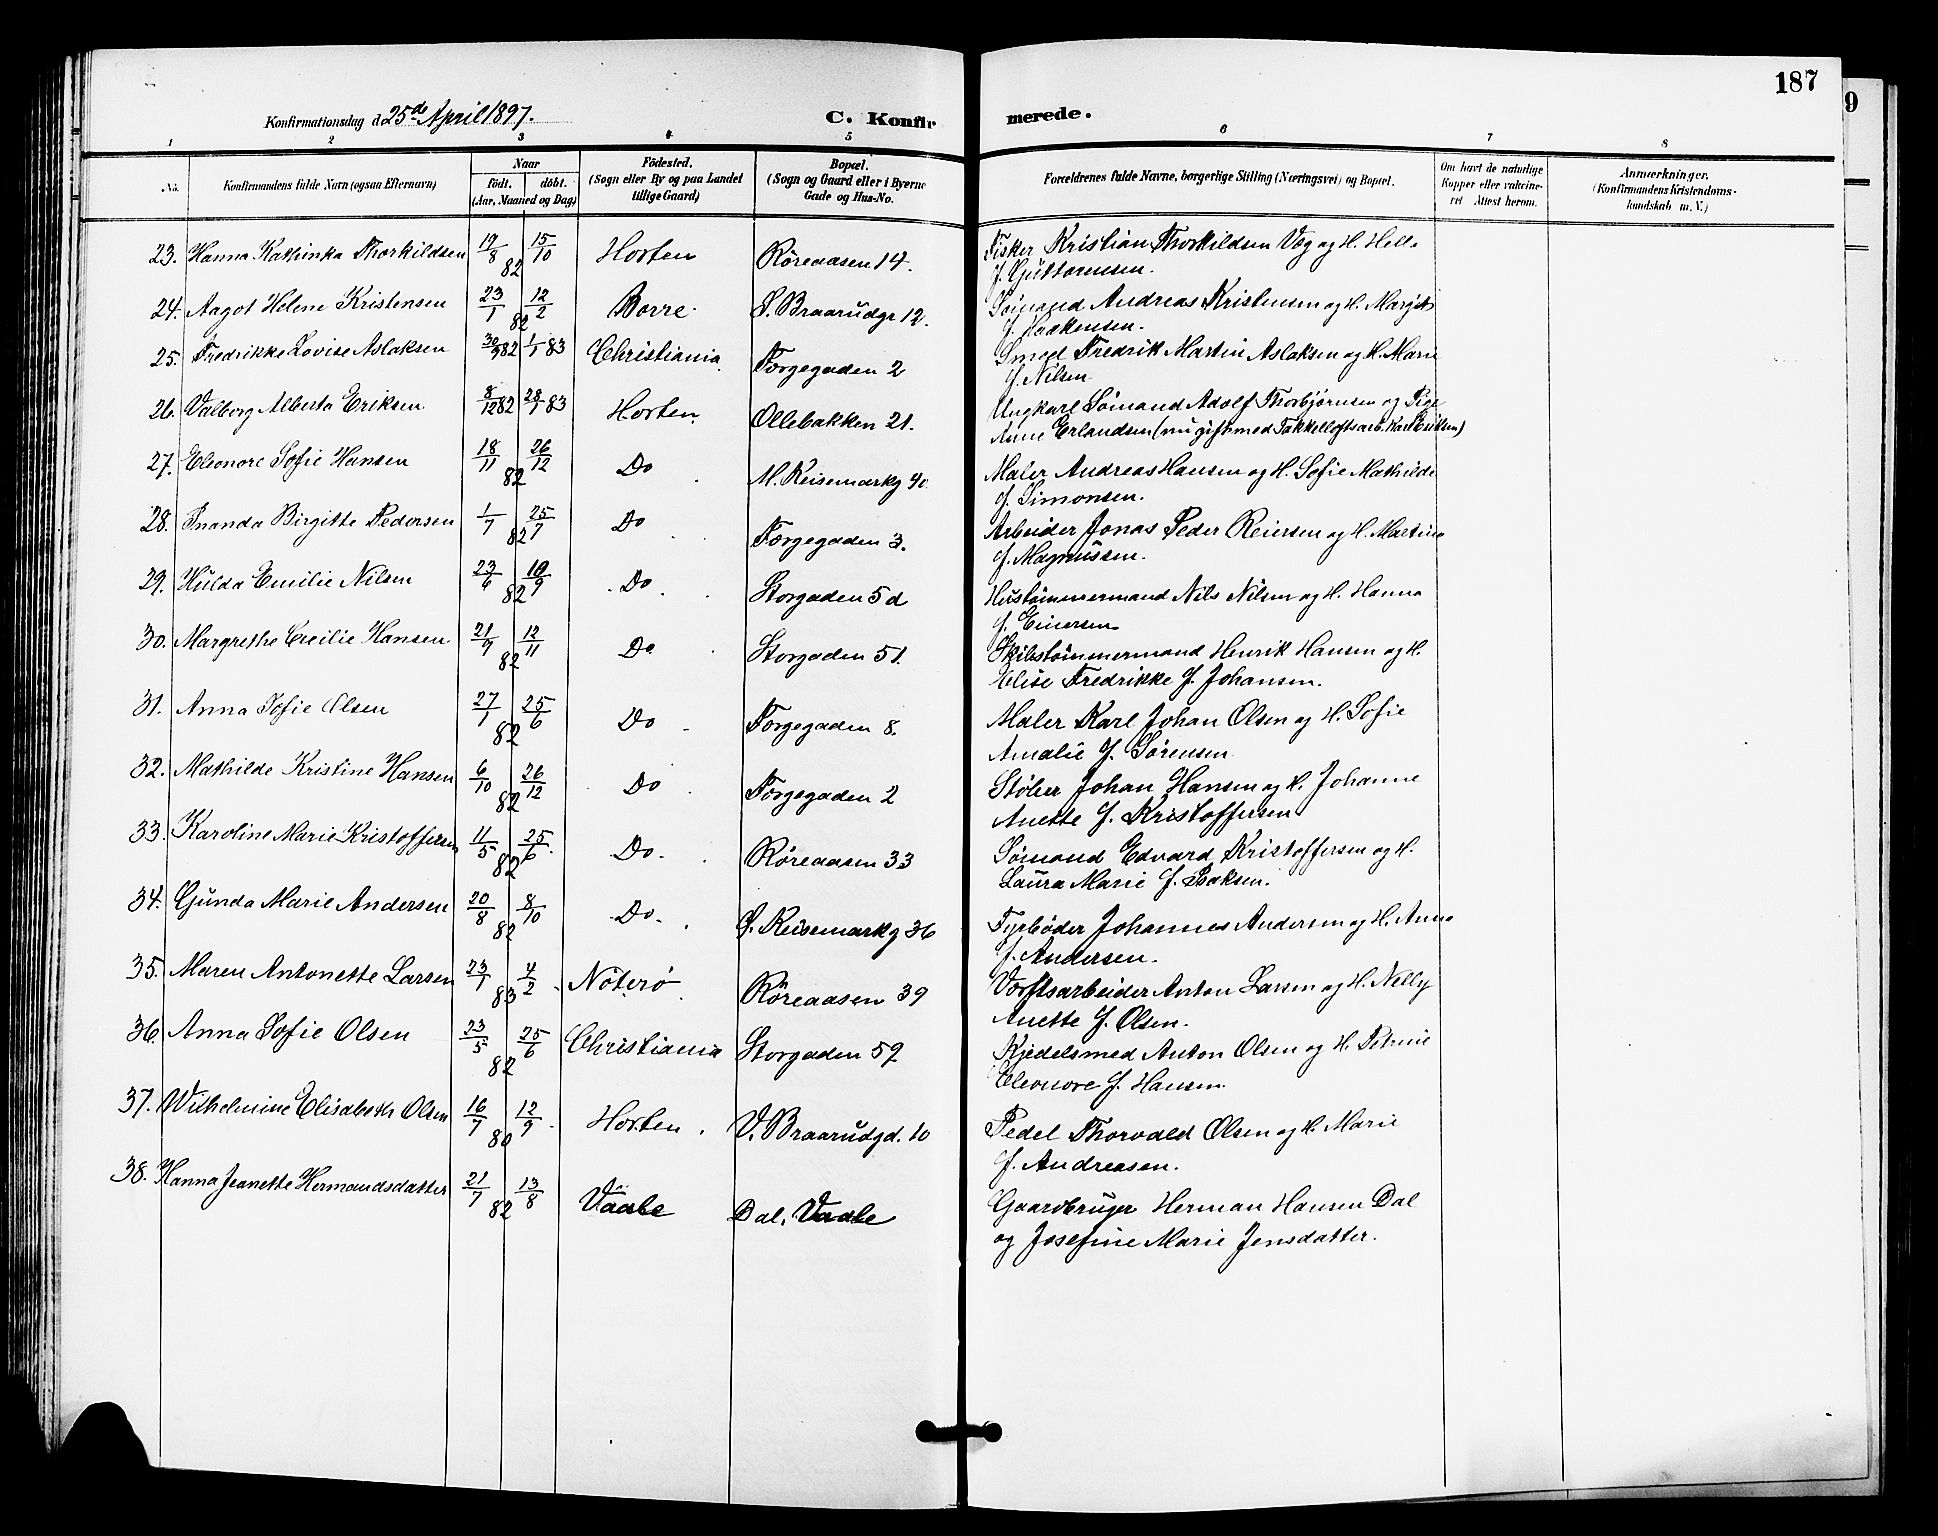 187
9
Konfirmationsdag d. 25de April 1897.
C. Konfirmerede.
1 2 3 4 5 6 7 8
No.
Konfirmandens fulde Navn (ogsaa Efternavn)
Naar
födt. döbt.
(Aar, Maaned og Dag)
Födested.
(Sogn eller By og paa Landet
tillige Gaard)
Bopæl.
(Sogn og Gaard eller i Byerne
Gade og Hus-No.
Forældrenes fulde Navne, borgerlige Stilling (Næringsvei) og Bopæl.
Om havt de naturlige
Kopper eller vaccine-
ret Attest herom.
Anmærkninger.
(Konfirmandens Kristendoms-
kundskab m. V.)
23. Hanna Kathinka Thorkildsen 19/8 15/10 82 Horten Röreaasen 14. Fisker Kristian Thorkildsen Væg og H. Helle
f. Guttormsen.
24. Aagot Helene Kristensen 23/1 12/2 82 Borre S. Braarudgr 12. Sömand Andreas Kristensen og H. Margit
f. Haakensen.
25. Fredrikke Lovise Aslaksen 30/9 82 1/1 83 Christiania. Torgegaden 2 Smed Fredrik Martin Aslaksen og H. Marie
f. Nilsen
26. Valborg Alberta Eriksen 8/12 82 28/1 83 Horten. Ollebakken 21. Ungkarl Sömand Adolf Thorbjørnsen og Pige
Anne Erlandsen (nu gift med Takkelloftsarb. Karl Eriksen)
27. Eleonore Sofie Hansen 18/11 26/12 82 Do. M. Keisemarkg 40. Maler Andreas Hansen og H. Sofie Mathilde
f. Simonsen.
28. Inanda Birgitte Pedersen 1/7 25/7 82 Do Torgegaden 3. Arbeider Jonas Peder Reiersen og H. Martine
f. Magnussen.
29. Hulda Emilie Nilsen 23/6 10/9 82 Do. Storgaden 5d Hustömmermand Nils Nilsen og H. Hanna
f. Einersen.
30. Margrethe Cecilie Hansen 21/9 12/11 82 Do Storgaden 51. Skibstömmermand Henrik Hansen og H.
Elise Fredrikke f. Johansen.
31. Anna Sofie Olsen 27/1 25/6 82 Do Torgegaden 8. Maler Karl Johan Olsen og H. Sofie
Amalie f. Sörensen
32. Mathilde Kristine Hansen 6/10 26/12 82 Do Torgegaden 2 Stöber Johan Hansen og H. Johanne
Anette f. Kristoffersen
33. Karoline Marie Kristoffersen 11/5 25/6. 82 Do. Röreaasen 33 Sömand Edvard Kristoffersen og H.
Laura Marie f. Isaksen.
34. Gunda Marie Andersen 20/8 8/10 82 Do. S. Keisemarkg 36 Fyrböder Johannes Andersen og H. Anna
f. Andersen.
35. Maren Antonette Larsen 23/1 4/2 83 Nöterö Röreaasen 39 Værftsarbeider Anton Larsen og H. Nelly
Anette f. Olsen.
36. Anna Sofie Olsen 23/5 25/6 82 Christiania Storgaden 59 Kjedelsmed Anton Olsen og H. Petrine
Eleonore f. Hansen.
37. Wilhelmine Elisabeth Olsen 16/7 12/9. 80 Horten. V. Braarudgd. 10 Pedel Thorvald Olsen og H. Marie
f. Andreasen.
38. Hanna Jeanette Hermandsdatter 21/7 13/8 82 Vaale Dal, Vaale Gaardbruger Herman Hansen Dal
og Josefine Marie Jensdatter.